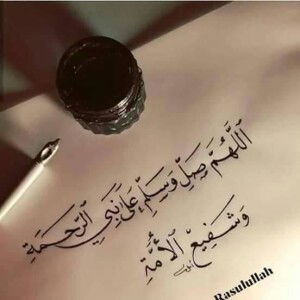 اَللّٰهُمَّ صَلِّ وَسَلِّمْ عَلَى نَبِيِّ الرَّحْمَةِ
وَشَفِيعِ الْأُمَّةِ
Rasulullah